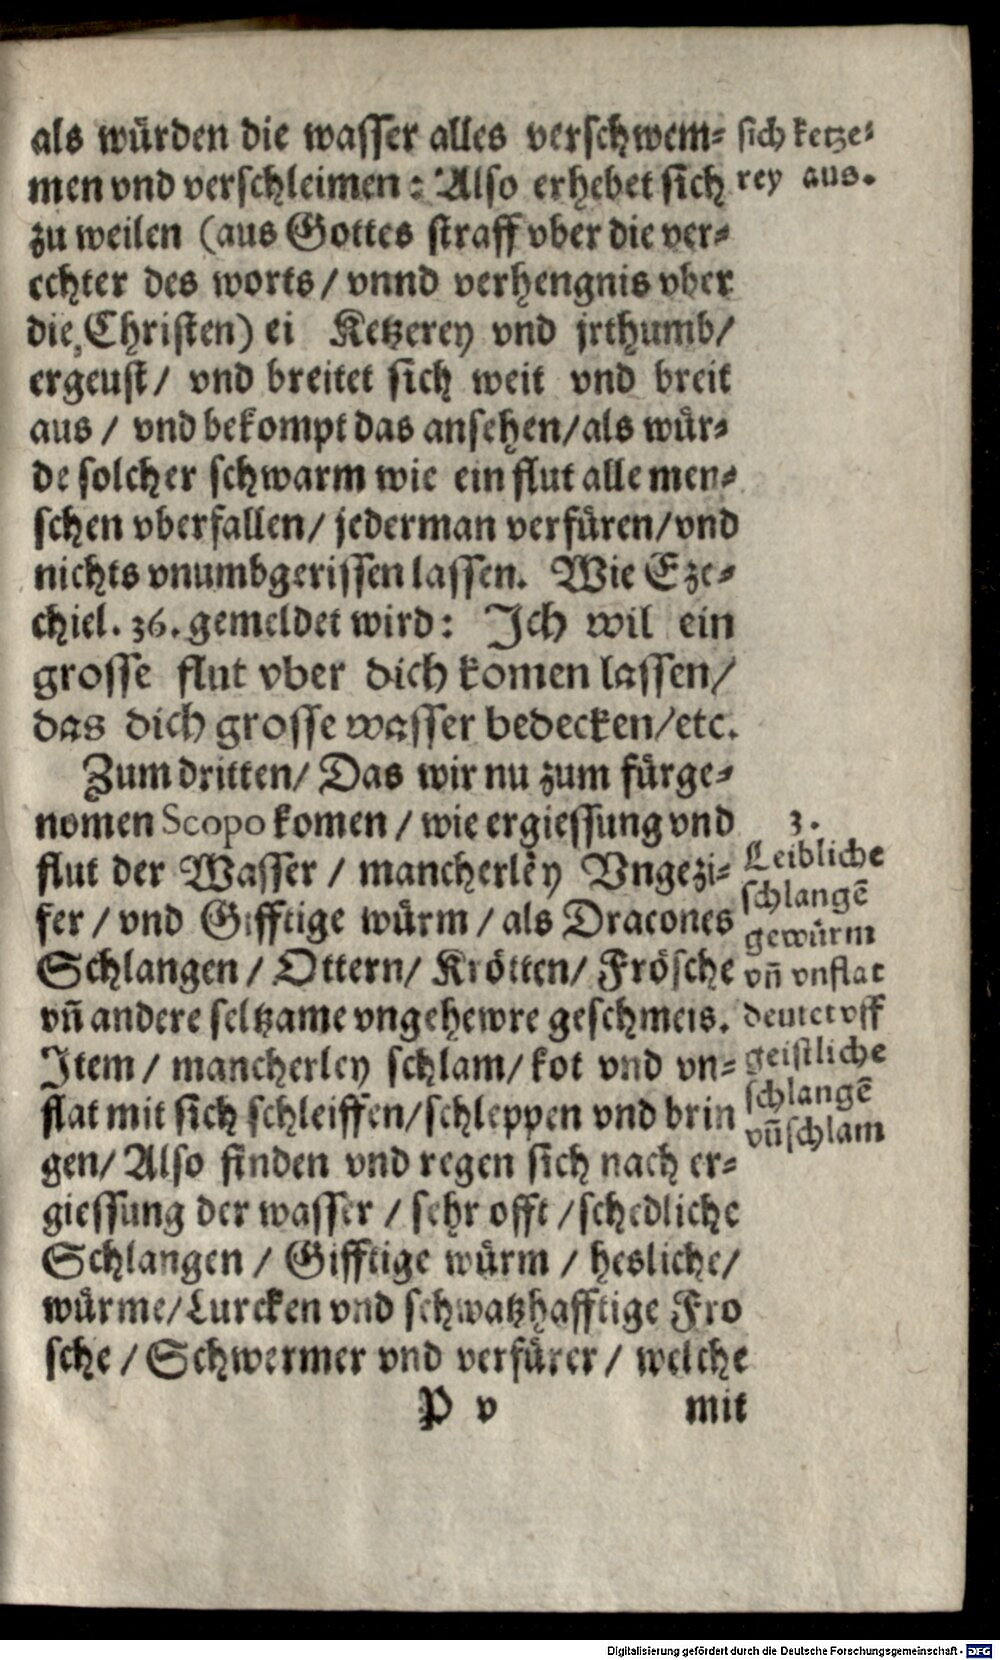 als würden die wasser alles verschwem-
men vnd verschleimen: Also erhebet sich
zu weilen (aus Gottes straff vber die ver-
echter des worts / vnnd verhengnis vber
die Christen) ei Ketzerey vnd jrthumb /
ergeust / vnd breitet sich weit vnd breit
aus / vnd bekompt das ansehen / als wür-
de solcher schwarm wie ein flut alle men-
schen vberfallen / jederman verfüren / vnd
nichts vnumbgerissen lassen. Wie Eze-
chiel. 36. gemeldet wird: Ich wil ein
grosse flut vber dich komen lassen /
das dich grosse wasser bedecken / etc.
Zum dritten / Das wir nu zum fürge-
nomen Scopo komen / wie ergiessung vnd
flut der Wasser / mancherley Vngezi-
fer / vnd Gifftige würm / als Dracones
Schlangen / Ottern / Krötten / Frösche
vñ andere seltzame vngehewre geschmeis.
Item / mancherley schlam / kot vnd vn-
flat mit sich schleiffen / schleppen vnd brin
gen / Also finden vnd regen sich nach er-
giessung der wasser / sehr offt / schedliche
Schlangen / Gifftige würm / hesliche /
würme / Lurcken vnd schwatzhafftige Fro
sche / Schwermer vnd verfürer / welche
P v mit
sich ketze-
rey aus.
3.
Leibliche
schlangẽ
gewürm
vñ vnflat
deutet vff
geistliche
schlangẽ
vñ schlam
Digitalisierung gefördert durch die Deutsche Forschungsgemeinschaft - DFG